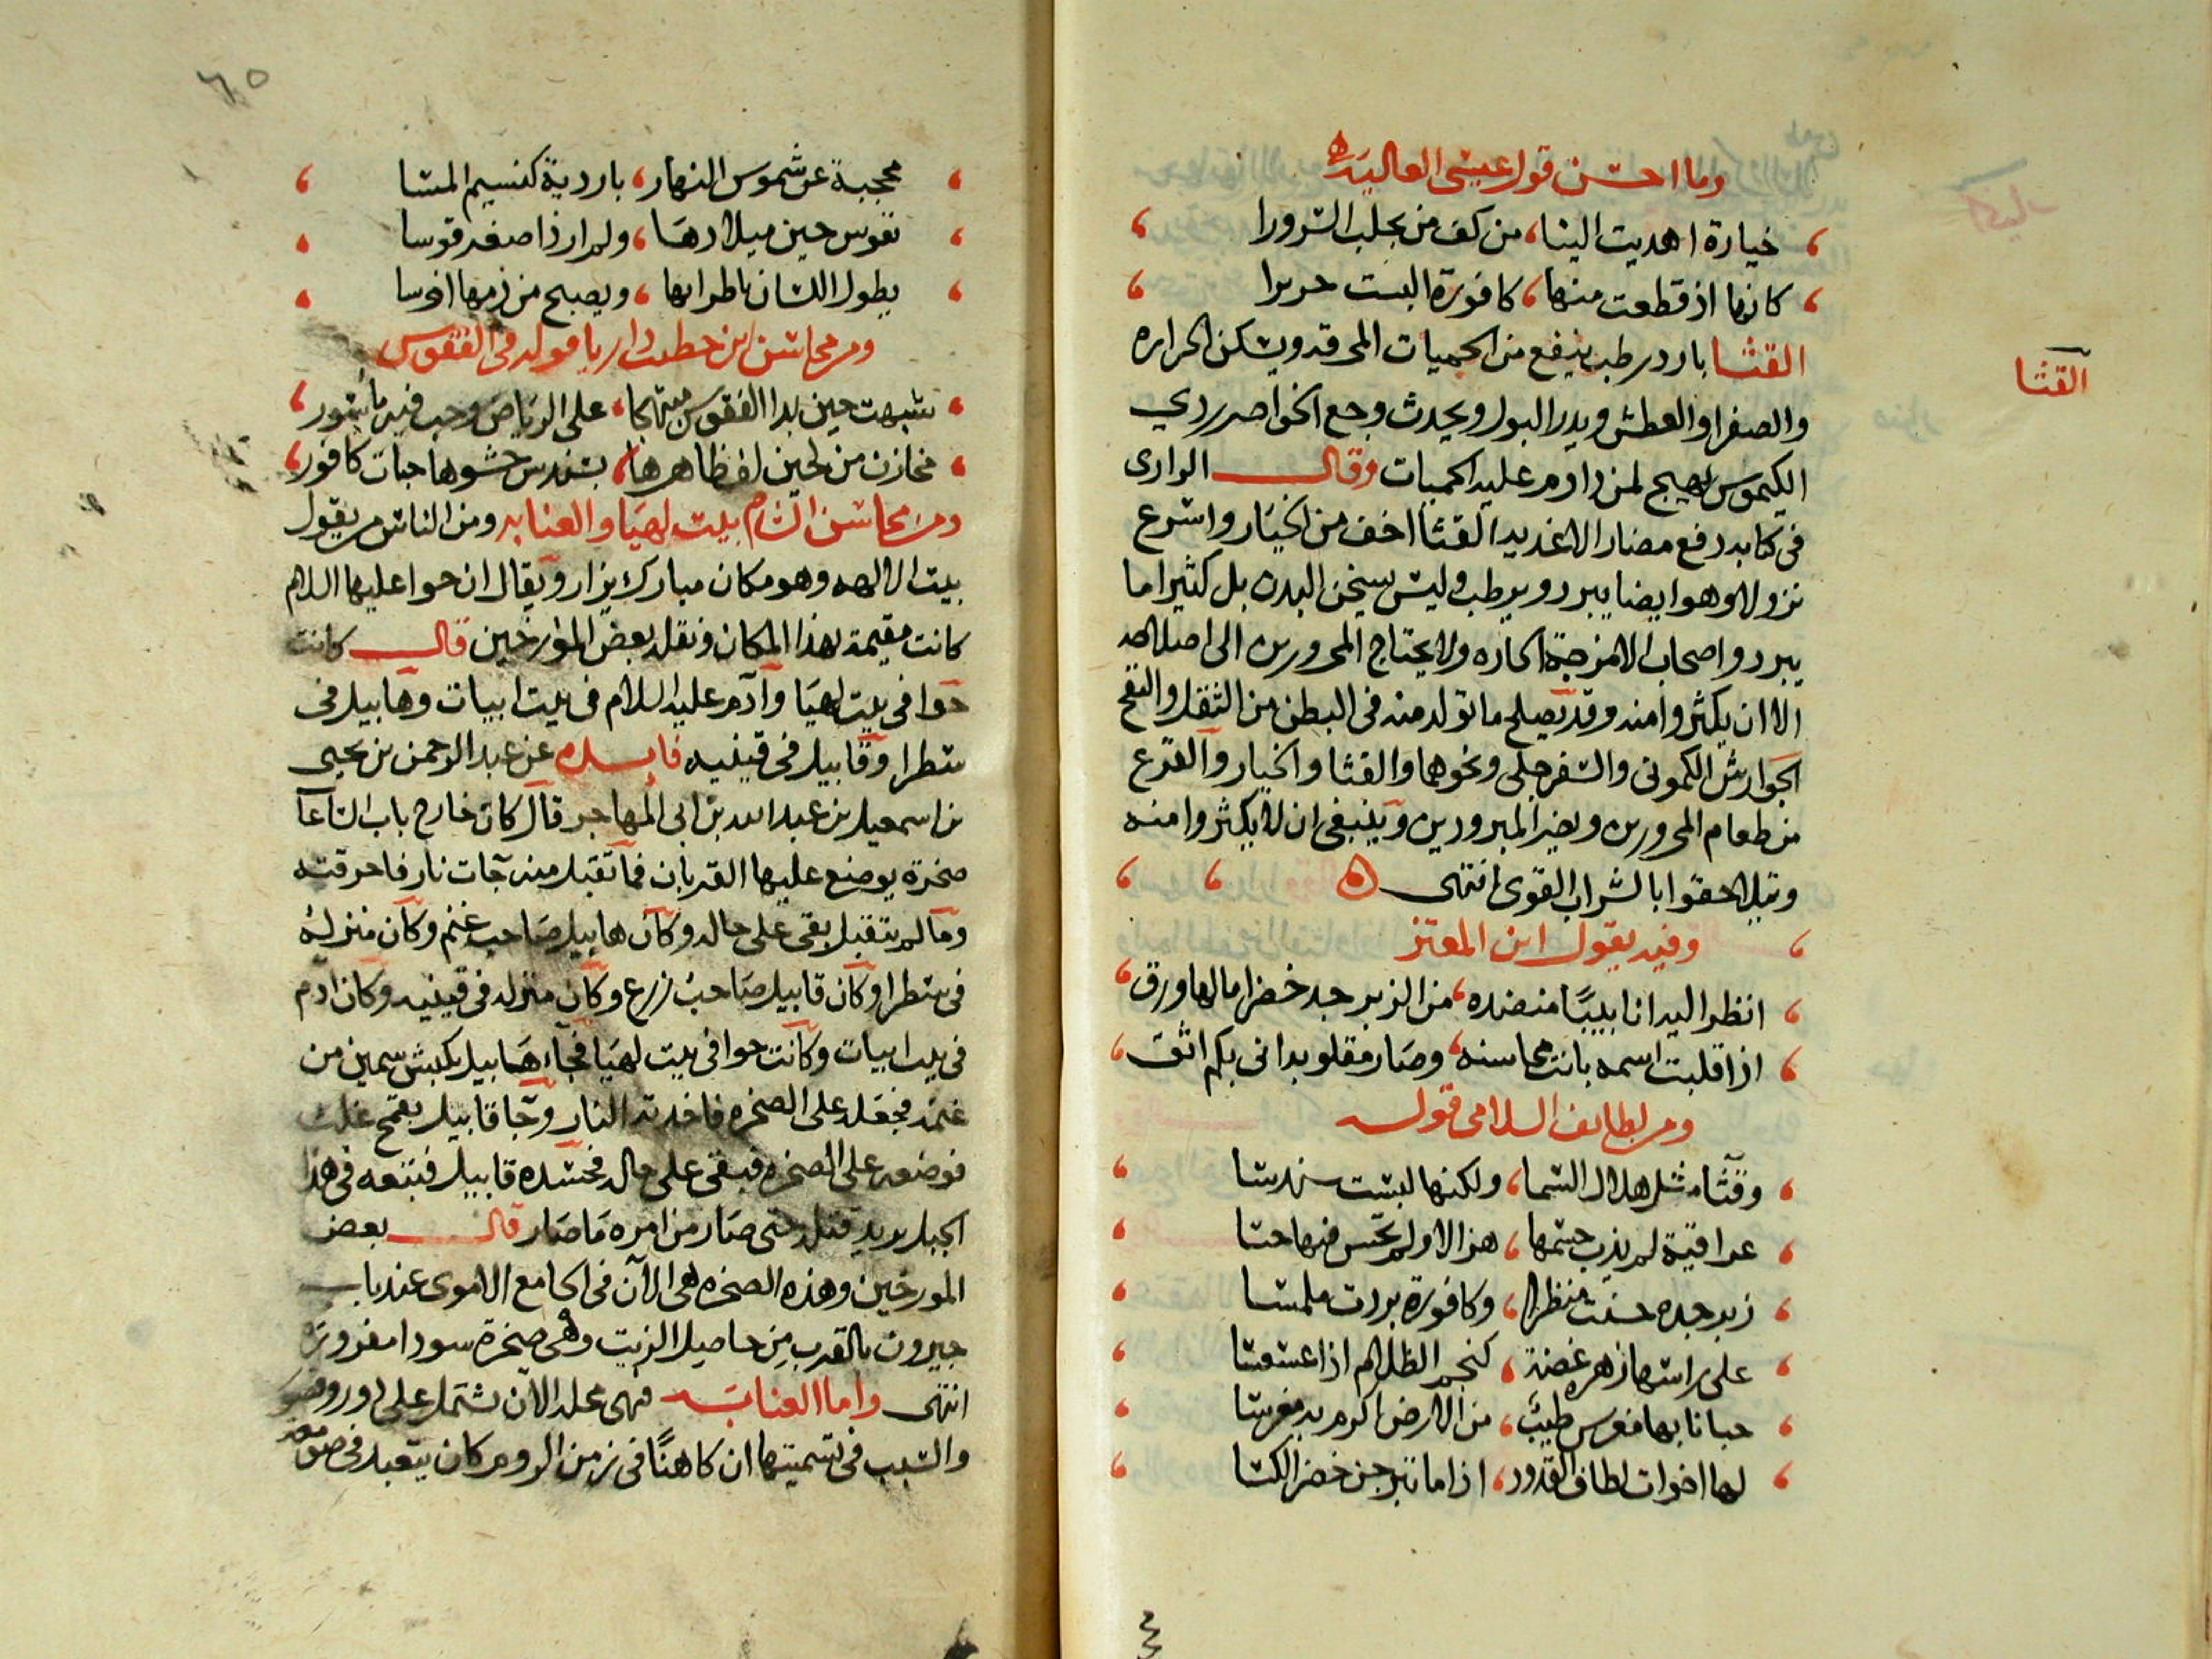 وما احسن قول عيسى العالية
خيارة اهديت الينا، من كف من يجلب السرورا
كانها اذ قطعت منها، كافورة البست حريرا
القثا
القثا بارد رطب ينفع من الحميات المحرقه ويسكن الحراره
والصفرا والعطش ويدر البول ويحدث وجع الخواصر ردي
الكيموس يهيج لمن داوم عليه الحميات وقال الرازى
فى كتابه دفع مضار الاغذيه القثا اخف من الخيار واسرع
نزولا وهو ايضا يبرد ويرطب وليس يسخن البدن بل كثيرا ما
يبرد واصحاب الامزجة الحاره ولا يحتاج المحرورين الى اصلاحه
الا ان يكثروا منه وقد يصلح ما تولد منه فى البطن من الثقل والنفخ
الجوارش الكمونى والسفرجلى ونحوهما والقثا والخيار والقرع
من طعام المحرورين ويضر المبرودين وينبغى ان لا يكثروا منه
ويتلاحقوا بالشراب القوى انتهى
وفيه يقول ابن المعتز
انظر اليه انابيبًا منضده، من الزبرجد خضرا مالها ورق
اذا قلبت اسمه بانت محاسنه، وصار مقلوبه انى بكم اثق
ومن لطايف السلامى قوله
وقثا مثل هلال السما، ولكنها لبست سندسا
عراقية لم يذب جسمها، هزالا ولم تحس فيها حسا
زبرجده حسنت منظرا، وكافورة بردت ملمسا
على راسها زهره غضة، كنجم الظلام اذا عسعسا
حبانا بها مغرس طيب، من الارض اكرم به مغرسا
لها اخوات لطاف القدود، اذا ما تبرجن خضر الكسا
٦٥
محجبة عن شموس النهار، باردية كنسيم المسا
تقوس حين ميلادها، ولم ار ذا صغر قوسا
يطول اللسان باطرابها، ويصبح من ذمها اخرسا
ومن محاسن ابن خطيب داريا قوله فى الفقوس
شبهت حين بدا الفقوس على الرياض وحب فيه ماسور
مخازن من لجين لف ظاهرها، بسندس حشوها حبات كافور
ومن محاسن الشام بيت لهيا والعنابه ومن الناس من يقول
بيت الالهه وهو مكان مبارك يزار ويقال ان حوا عليها السلام
كانت مقيمة بهذا المكان ونقل بعض المؤرخين قال كانت
حوا فى بيت لهيا وآدم عليه السلام فى بيت ابيات وهابيل فى
سطرا وقابيل فى قينيه فايده عن عبد الرحمن بن يحيى
بن اسمعيل بن عبد الله بن ابى المهاجر قال كان خارج باب الساعآ
صخرة يوضع عليها القربان فما تقبل منه جات نار فاحرقته
وما لم يتقبل بقى على حاله وكان هابيل صاحب غنم وكان منزله
فى سطرا وكان قابيل صاحب زرع وكان منزله فى قينيه وكان ادم
فى بيت ابيات وكانت حوا فى بيت لهيا فجاء هابيل بكبش سمين من
غنمه فجعله على الصخره فاخذته النار وجا قابيل بقمح غلث
فوضعه على الصخره فبقى على حاله فحسده قابيل فتبعه فى هذا
الجبل يريد قتله حتى صار من امره ما صار قال بعض
المورخين وهذه الصخره هى الان فى الجامع الاموى عند باب
جيرون بالقرب من حاصيل الزيت وهى صخرة سودا مفروزه
انتهى واما العنابه فهى محله الان تشتمل على دور وقصور
والسبب فى تسميتها ان كاهنًا فى زمن الروم كان يتعبد فى صومعه